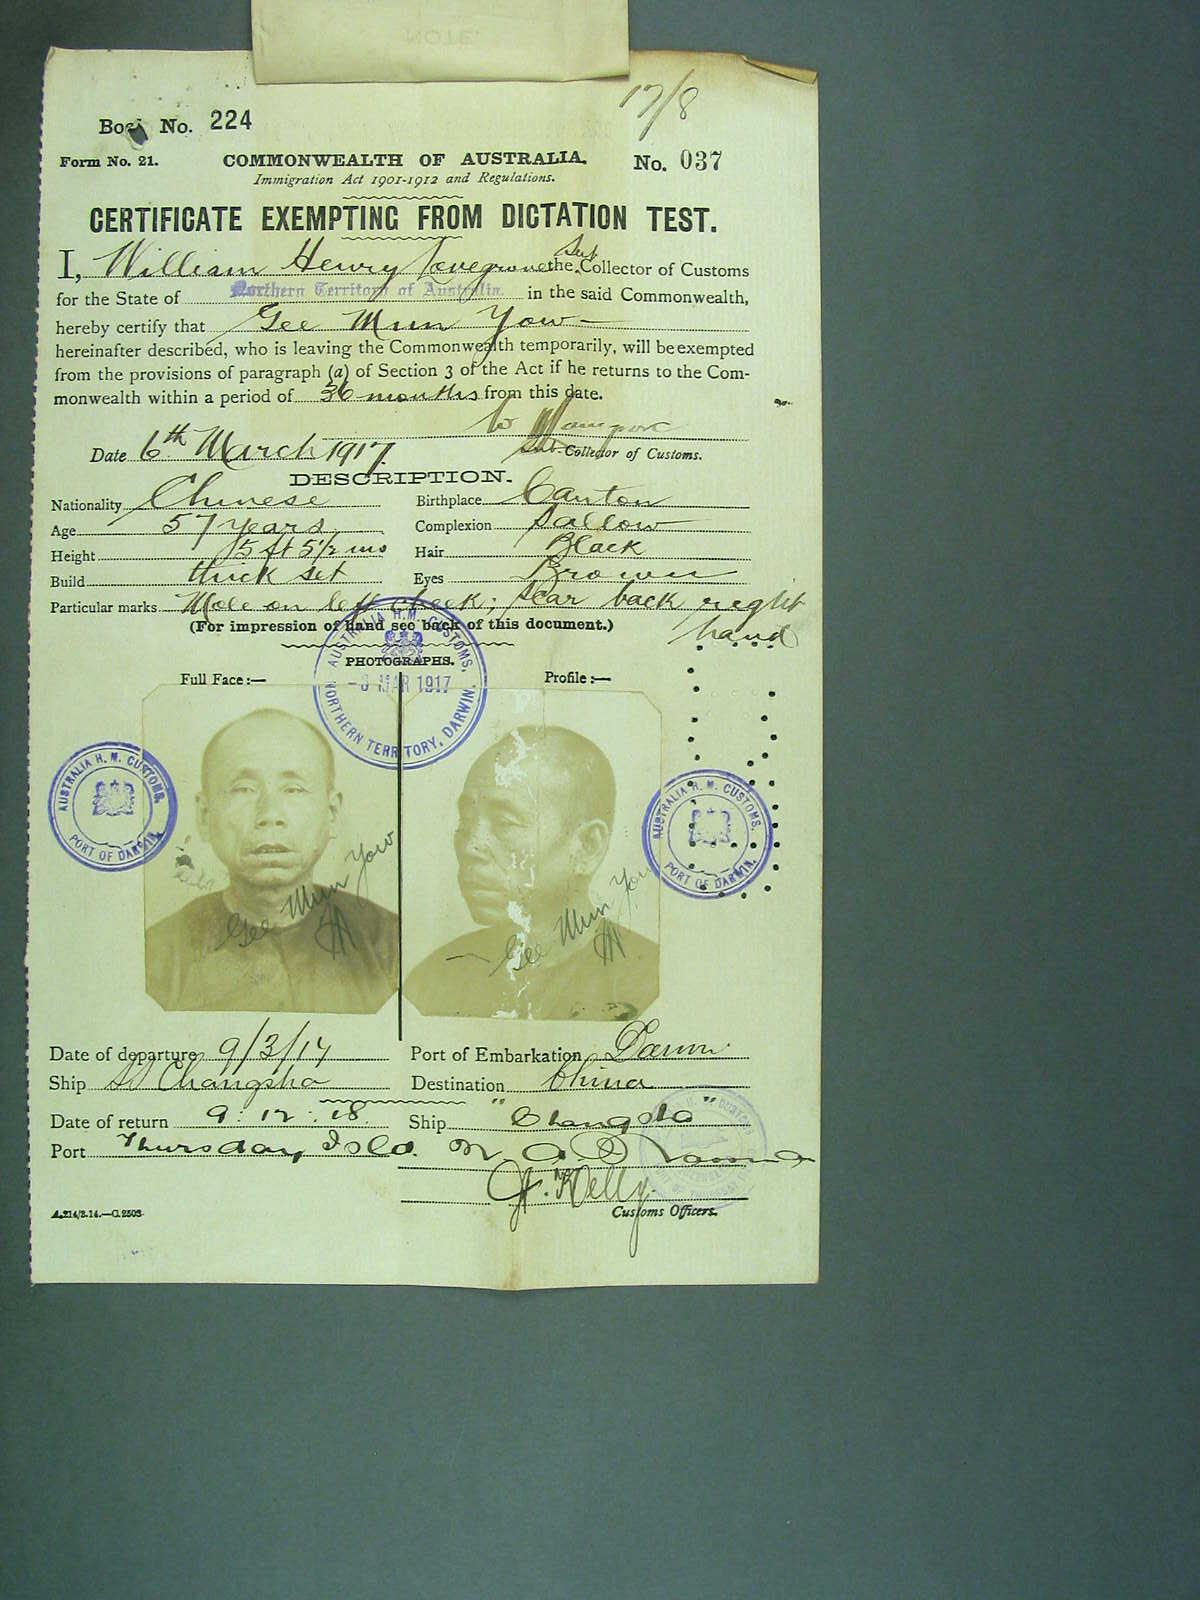 17/8
Book No. 224
Form No. 21. COMMONWEALTH OF AUSTRALIA. No. 037
Immigration Act 1901-1912 and Regulations.
CERTIFICATE EXEMPTING FROM DICTATION TEST.
I, William Henry Lovegrove the Sub Collector of Customs
for the State of Northern Territory of Australia. in the said Commonwealth,
hereby certify that Gee Mun Yow
hereinafter described, who is leaving the Commonwealth temporarily, will be exempted
from the provisions of paragraph (a) of Section 3 of the Act if he returns to the Com-
monwealth within a period of 36 months from this date.
Date 6th March 1917. Sub-Collector of Customs.
DESCRIPTION.
Nationality Chinese Birthplace Canton
Age 57 years Complexion Sallow
Height 5 ft 5½ ins Hair Black
Build thick set Eyes Brown
Particular marks Mole on left cheek; Scar back right hand
(For impression of hand see back of this document.)
PHOTOGRAPHS.
Full Face :— Profile :—
AUSTRALIA H.M. CUSTOMS, NORTHERN TERRITORY, DARWIN.
MAR 1917
AUSTRALIA H. M. CUSTOMS, PORT OF DARWIN.
AUSTRALIA H. M. CUSTOMS. PORT OF DARWIN.
Gee Mun Yow
Gee Mun Yow
Date of departure 9/3/17 Port of Embarkation Darwin
Ship SS Changsha Destination China
Date of return 9:12:18 Ship "Changsha"
Port Thursday Isld.
Kelly
Customs Officers.
A.214/2.14.—C.2503.
NOTE.